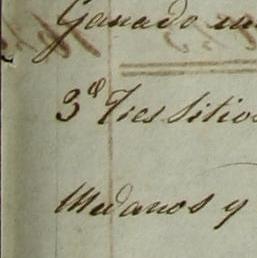 Ganado
3ª Tres Sitios
Medanos y